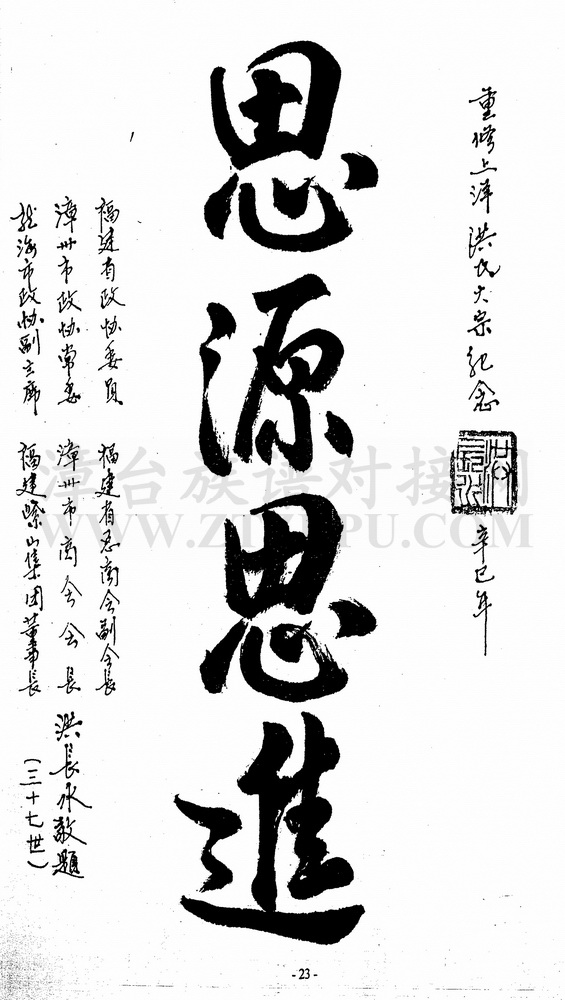 重修上洋洪氏大宗紀念
辛巳年
思源思進
福建省政协委員
福建省总商会副会長
漳州市政协常委
漳州市商会会長
龙海市政协副主席
福建紫山集团董事長
洪長水敬題
(三十七世)
漳台族谱对接网
- 23 -